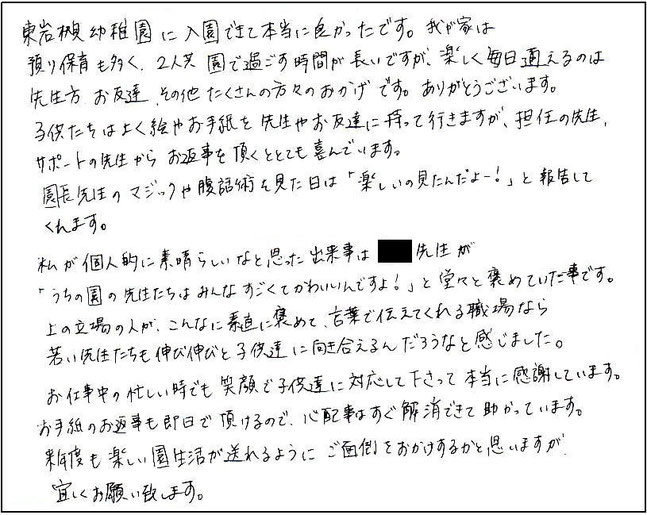 東岩槻幼稚園に入園できて本当に良かったです。我が家は
預り保育も多く、2人共 園で過ごす時間が長いですが、楽しく毎日通えるのは
先生方 お友達、その他たくさんの方々のおかげです。ありがとうございます。
子供たちはよく絵やお手紙を先生やお友達に持って行きますが、担任の先生、
サポートの先生から お返事を頂くととても喜んでいます。
園長先生のマジックや腹話術を見た日は「楽しいの見たんだよー!」と報告して
くれます。
私が個人的に素晴らしいなと思った出来事は 先生が
「うちの園の先生たちはみんなすごくてかわいいんですよ!」と堂々と褒めていた事です。
上の立場の人が、こんなに素直に褒めて、言葉で伝えてくれる職場なら
若い先生たちも伸び伸びと子供達に向き合えるんだろうなと感じました。
お仕事中の忙しい時でも笑顔で子供達に対応して下さって本当に感謝しています。
お手紙のお返事も即日で頂けるので、心配事はすぐ解消できて助かっています。
来年度も楽しい園生活が送れるように ご面倒をおかけするかと思いますが、
宜しくお願い致します。